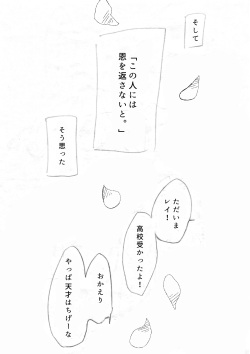 そして
「この人には
恩を返さないと。」
そう思った
ただいま
レイ!
高校受かったよ!
おかえり
やっぱ天才はちげーな